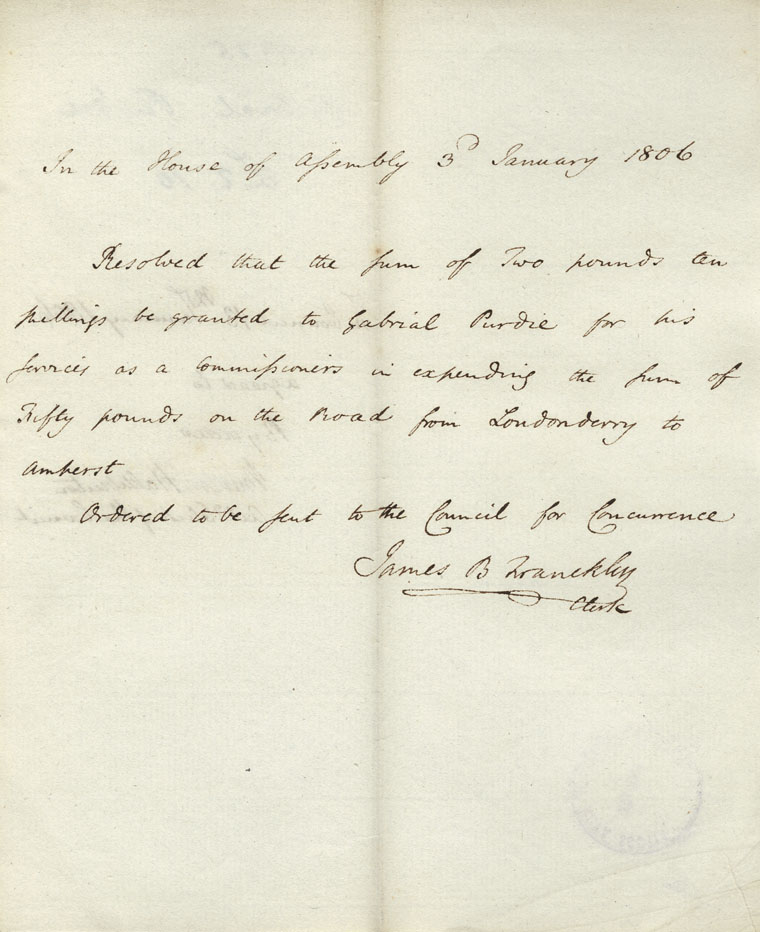 In the House of Assembly 3d January 1806
Resolved that the sum of Two pounds ten
shillings be granted to Gabrial Purdie for his
services as a Commissioners in expending the sum of
Fifty pounds on the Road from Londonderry to
Amherst
Ordered to be sent to the Council for Concurrence
James B Franckley
Clerk